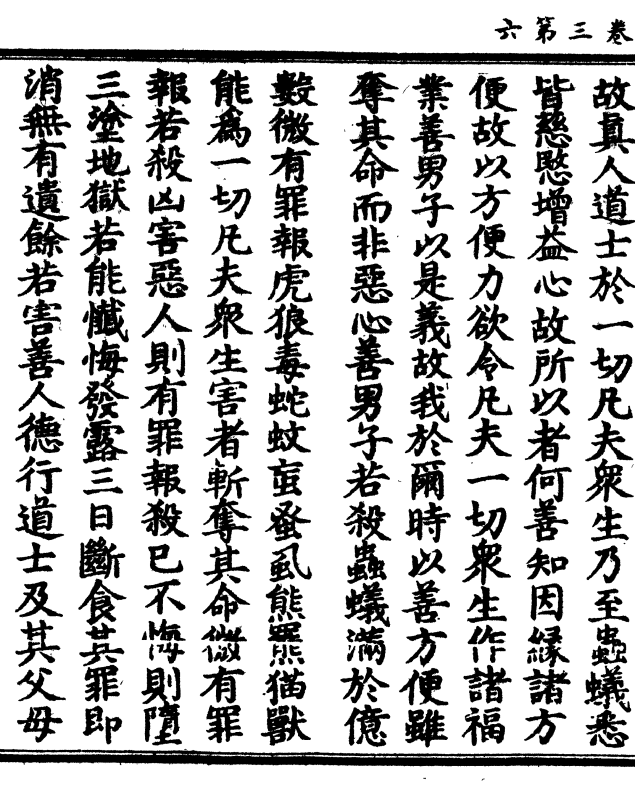 卷三第六
故真人道士於一切凡夫衆生乃至蟲蟻悉
皆慈愍增益心故所以者何善知因緣諸方
便故以方便力欲令凡夫一切衆生作諸福
業善男子以是義故我於爾時以善方便雖
奪其命而非惡心善男子若殺蟲蟻滿於億
數微有罪報虎狼毒蛇蚊䖟蚤虱熊羆猫獸
能爲一切凡夫衆生害者斬奪其命微有罪
報若殺凶害惡人則有罪報殺已不悔則墮
三塗地獄若能懺悔發露三日斷食其罪即
消無有遺餘若害善人德行道士及其父母